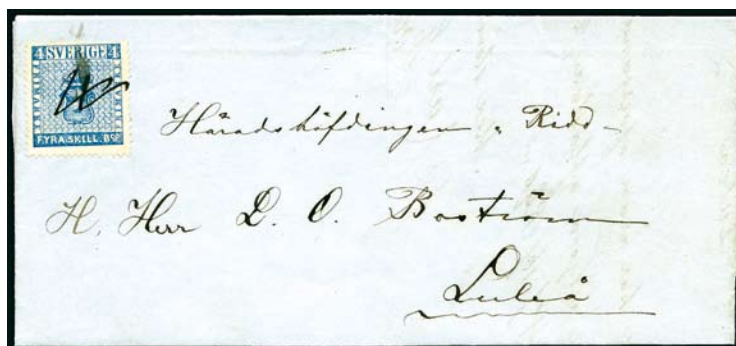 4 SVERIGE 4
FYRA SKILL. BCO
Häradshöfdingen & Ridd-
H. Herr D. O. Boström
Luleå